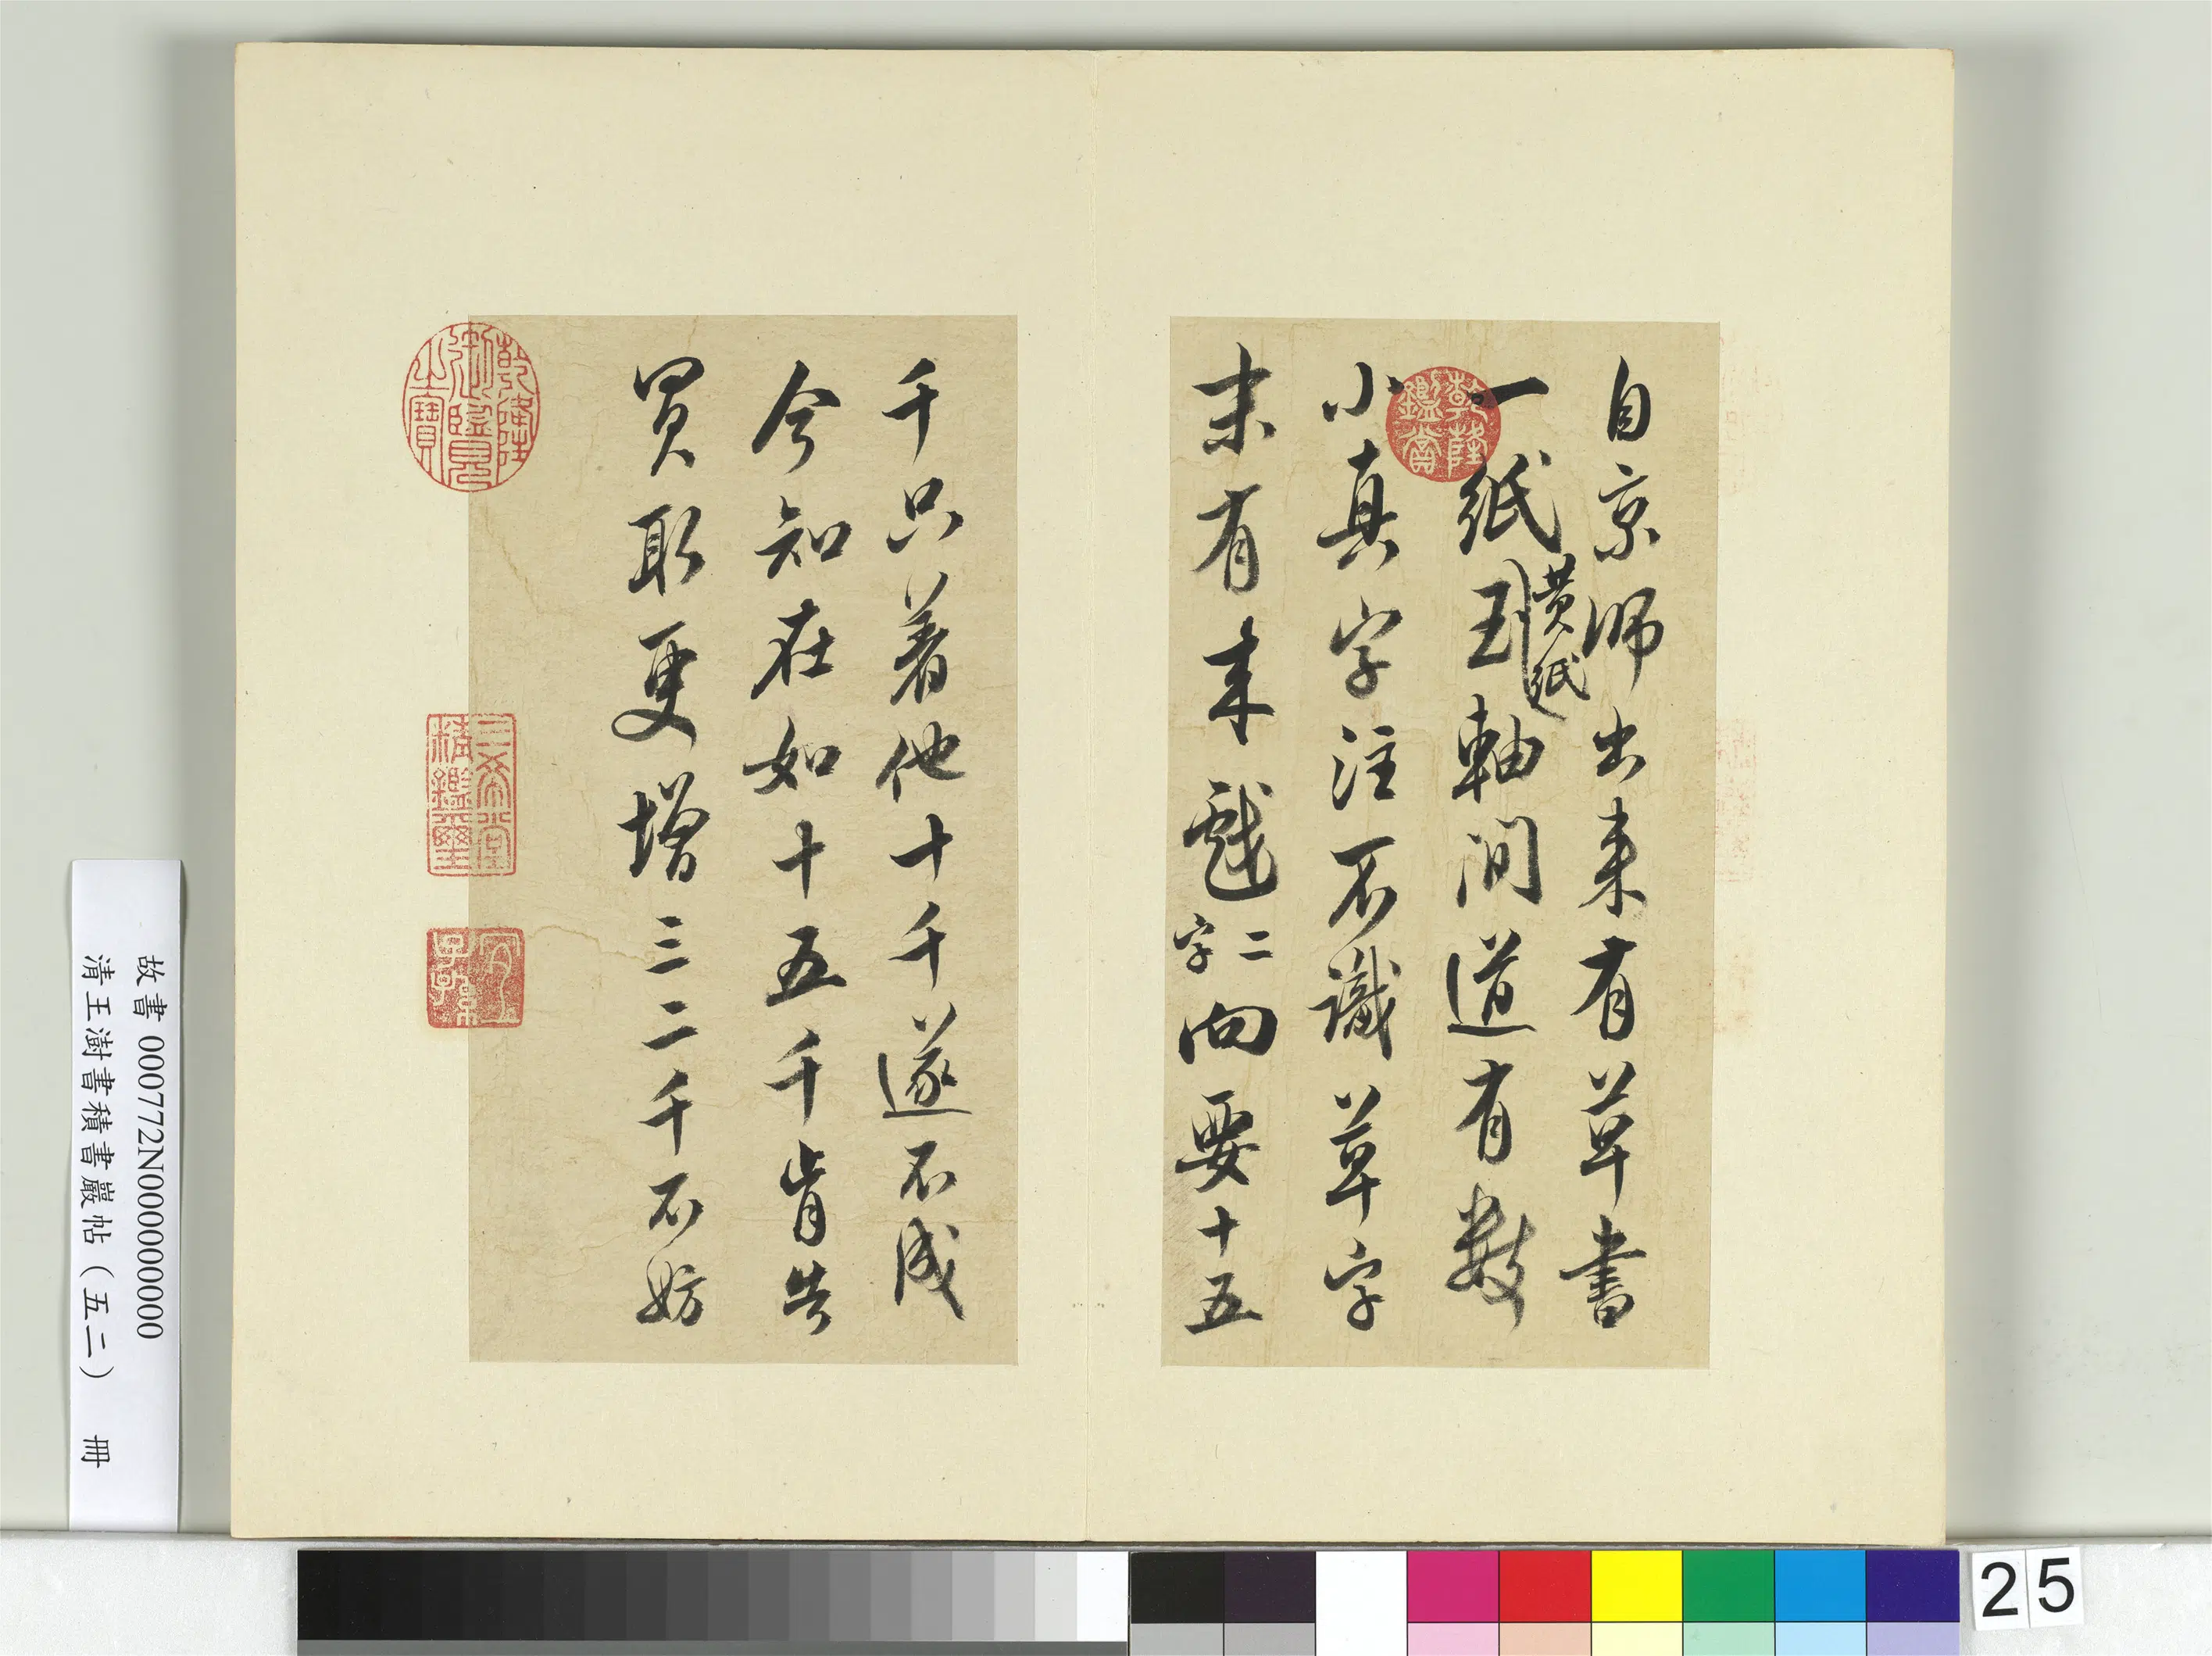 自京师出来有草書
一紙黄紙玉軸间道有数
小真字注不識草字
末有来戲二字向要十五
千只着他十千遂不成
今知在如十五千肯告
買取更增三二千不妨
乾隆鑑賞
乾隆御覽之寶
三希堂精鑑璽
宜子孫
故書 000772N000000000
清王澍書積書巖帖（五二） 冊
25